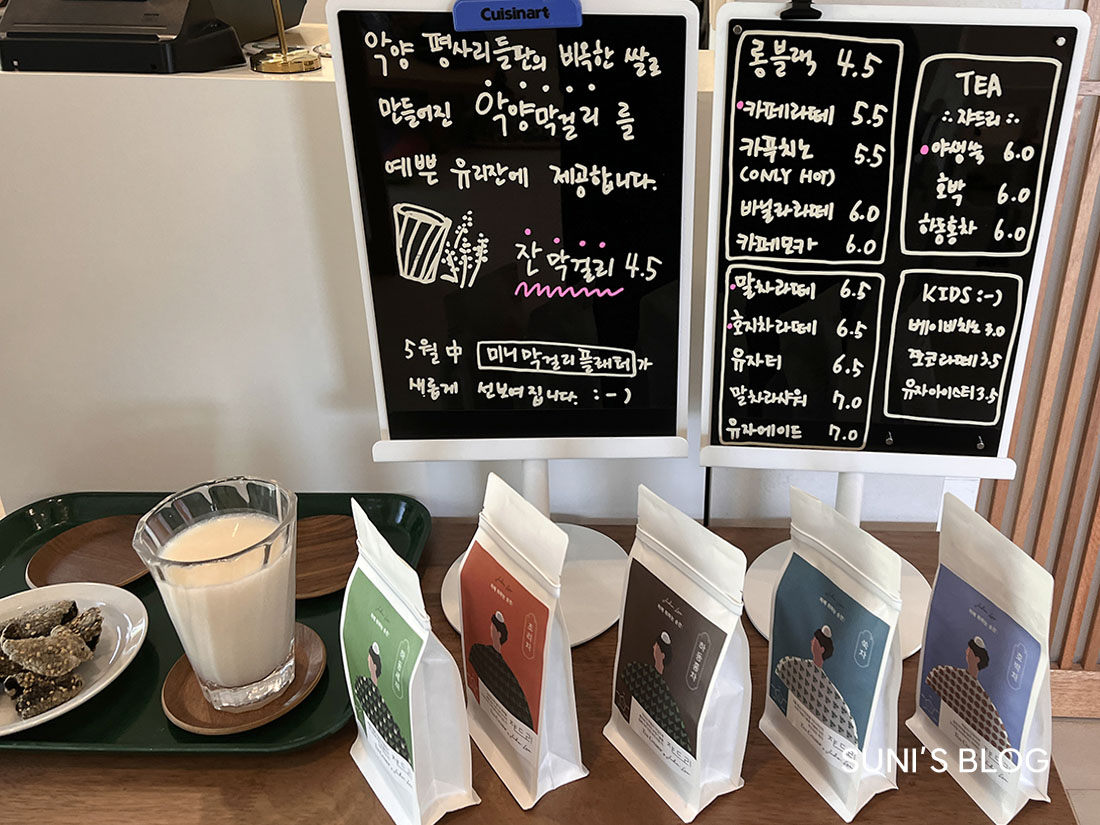 Cuisinart
악양 평사리들판의 비옥한 쌀로
만들어진 악양막걸리를
예쁜 유리잔에 제공합니다.
잔 막걸리 4.5
5월 中 미니막걸리플래터가
새롭게 선보여집니다. :-)
롱블랙 4.5
카페라떼 5.5
카푸치노 5.5
(ONLY HOT)
바닐라라떼 6.0
카페모카 6.0
말차라떼 6.5
호지차라떼 6.5
유자티 6.5
말차라샤워 7.0
유자에이드 7.0
TEA
∴ 쟈드리 :·
야생쑥 6.0
호박 6.0
하동홍차 6.0
KIDS :-)
베이비치노 3.0
쪼코라떼 3.5
유자아이스티 3.5
하동녹차
쟈드리
하동홍차
쟈드리
쑥차
쟈드리
호박차
SUNI'S BLOG